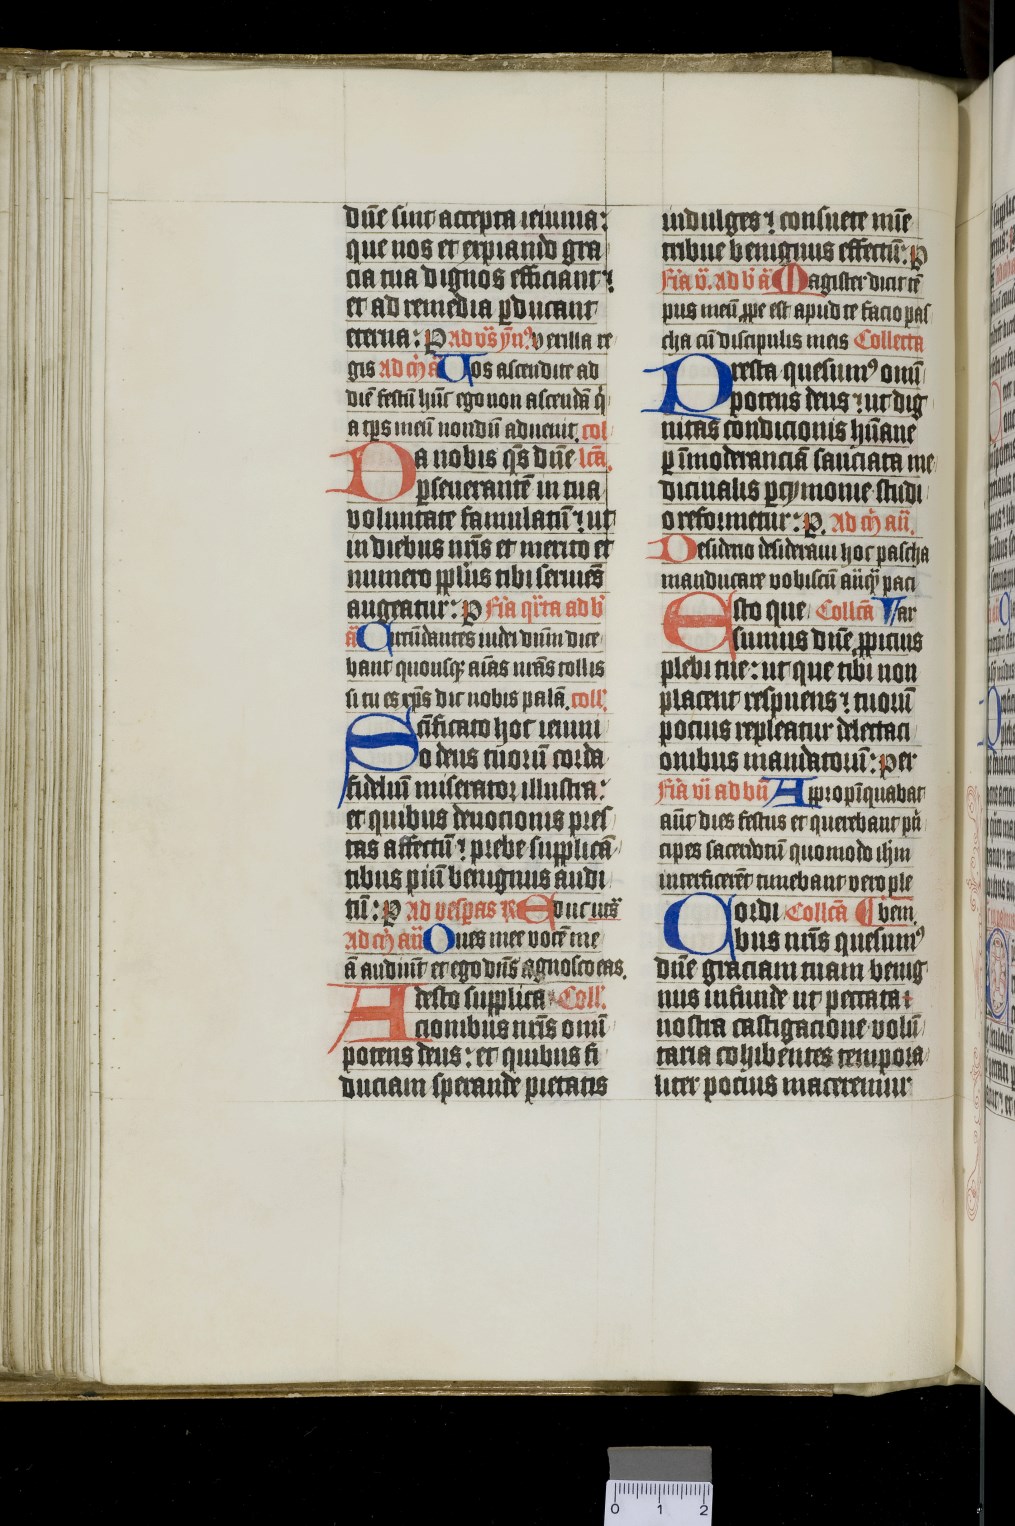 dn̄e sint accepta ieiunia:
que nos et expiando gra
cia tua dignos efficiant:
et ad remedia ꝑducant
eterna: P Ad vs̄ yn̄ꝰ Vexilla re
gis ad m̄ a᷑ Vos ascendite ad
diē festū hūc ego non ascendā q̄
a tp̄s meū nondū aduenit. col
Da nobis qs̄ dn̄e lcā.
ꝑseuerantē in tua
voluntate famulatū: ut
in diebus nr̄is et merito et
numero pp̄lus tibi seruiēs
augeatur: P Fīa qr̄ta ad b̄
a᷑ Circūdantes iudei dnm̄ dice
bant quousqꝫ aīas nr̄as tollis
si tu es xp̄s dic nobis palā. coll'.
Scīficato hoc ieiuni
o deus tuorū corda
fideliū miserator illustra:
et quibus deuocionis pres
tas affectū: prebe supplicā
tibus piū benignus audi
tū: P Ad vesperas R Educ us̄
Ad m̄ an̄ Oues mee vocē me
ā audiūt et ego dn̄s agnosco eas.
Adesto supplica Coll'.
cionibus nr̄is omī
potens deus: et quibus fi
duciam sperande pietatis
indulges: consuete mīe
tribue benignus effectū: P
Fīa v. ad b̄ a᷑ Magister dicit tē
pus meū ꝓpe est apud te facio pas
cha cū discipulis meis Collecta
Presta quesumꝰ omī
potens deus: ut dig
nitas condicionis hūane
ꝑ īmoderanciā sauciata me
dicinalis ꝑcymonie studi
o reformetur: P. Ad m̄ an̄.
Desiderio desideraui hoc pascha
manducare vobiscū an̄qꝫ paci
Esto que Collcā Var
sumus dn̄e ꝓpicius
plebi tue: ut que tibi non
placent respuens: tuorū
pocius repleatur delectaci
onibus mandatorū: Per
Fīa vi ad bn̄ Appropīquabat
aūt dies festus et querebant pn̄
cipes sacerdotū quomodo ihm̄
interficerēt timebant vero ple
Cordi Collcā bem
bus nr̄is quesumꝰ
dn̄e graciam tuam benig
nus infunde ut peccata
nostra castigacione volū
taria cohibentes tempora
liter pocius maceremur